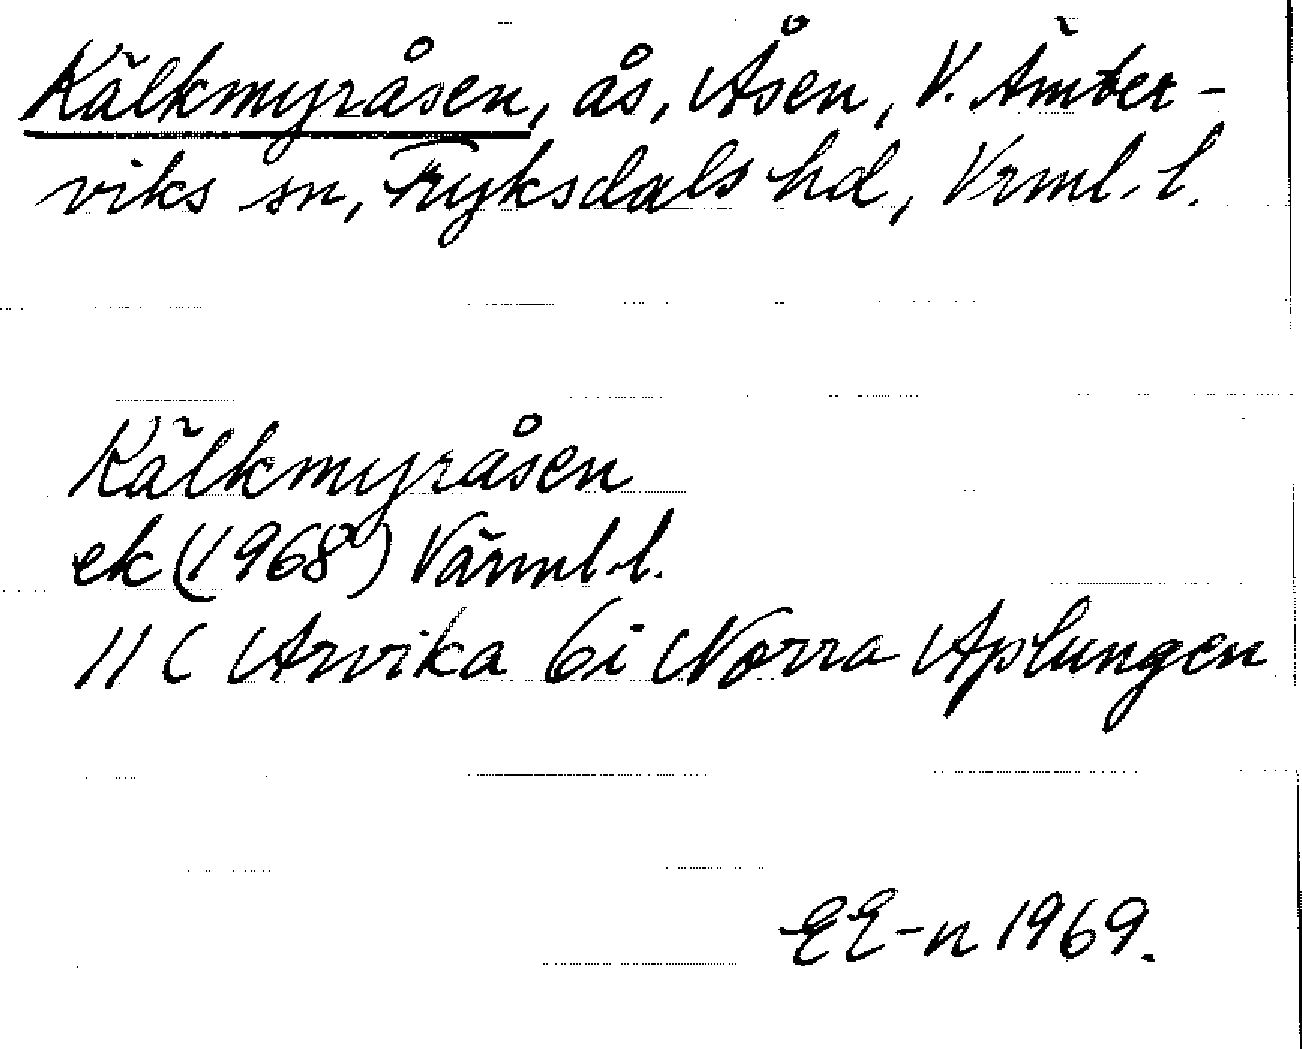 Kälkmyråsen, ås, Åsen, V. Ämter-
viks sn, Fryksdals hd, Vrml. l.
Kälkmyråsen
ek (1968) Värml. l.
11 C Arvika 6i Norra Aplungen
EE-n 1969.